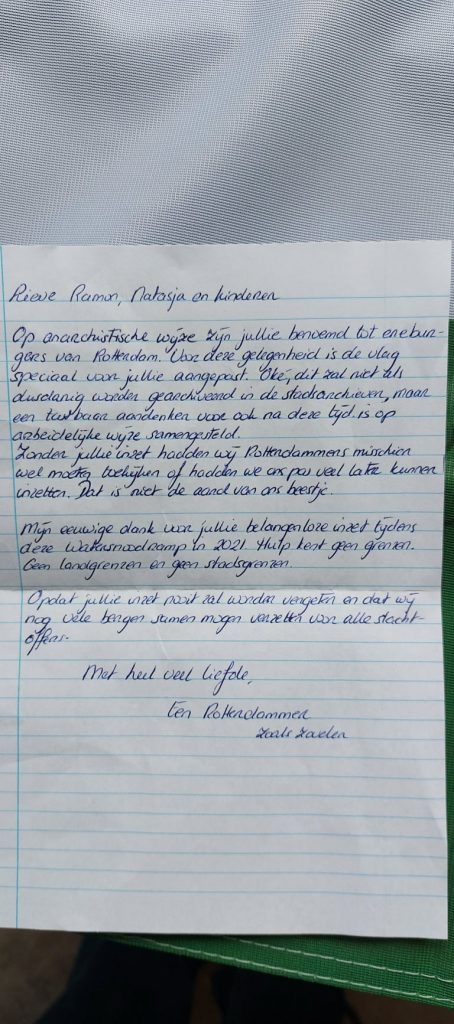 Lieve Ramon, Natasja en kinderen
Op anarchistische wijze zijn jullie benoemd tot erebur-
gers van Rotterdam. Voor deze gelegenheid is de vlag
speciaal voor jullie aangepast. Oké, dit zal niet als
dusdanig worden gearchiveerd in de stadsarchieven, maar
een tastbaar aandenken voor ook na deze tijd is op
arbeidelijke wijze samengesteld.
Zonder jullie inzet hadden wij Rotterdammers misschien
wel moeten toekijken of hadden we ons pas veel later kunnen
inzetten. Dat is niet de aard van ons beestje.
Mijn eeuwige dank voor jullie belangenloze inzet tijdens
deze Watersnoodramp in 2021. Hulp kent geen grenzen.
Geen landgrenzen en geen stadsgrenzen.
Opdat jullie inzet nooit zal worden vergeten en dat wij
nog vele bergen samen mogen verzetten voor alle slacht-
offers.
Met heel veel liefde,
Een Rotterdammer
zoals zovelen